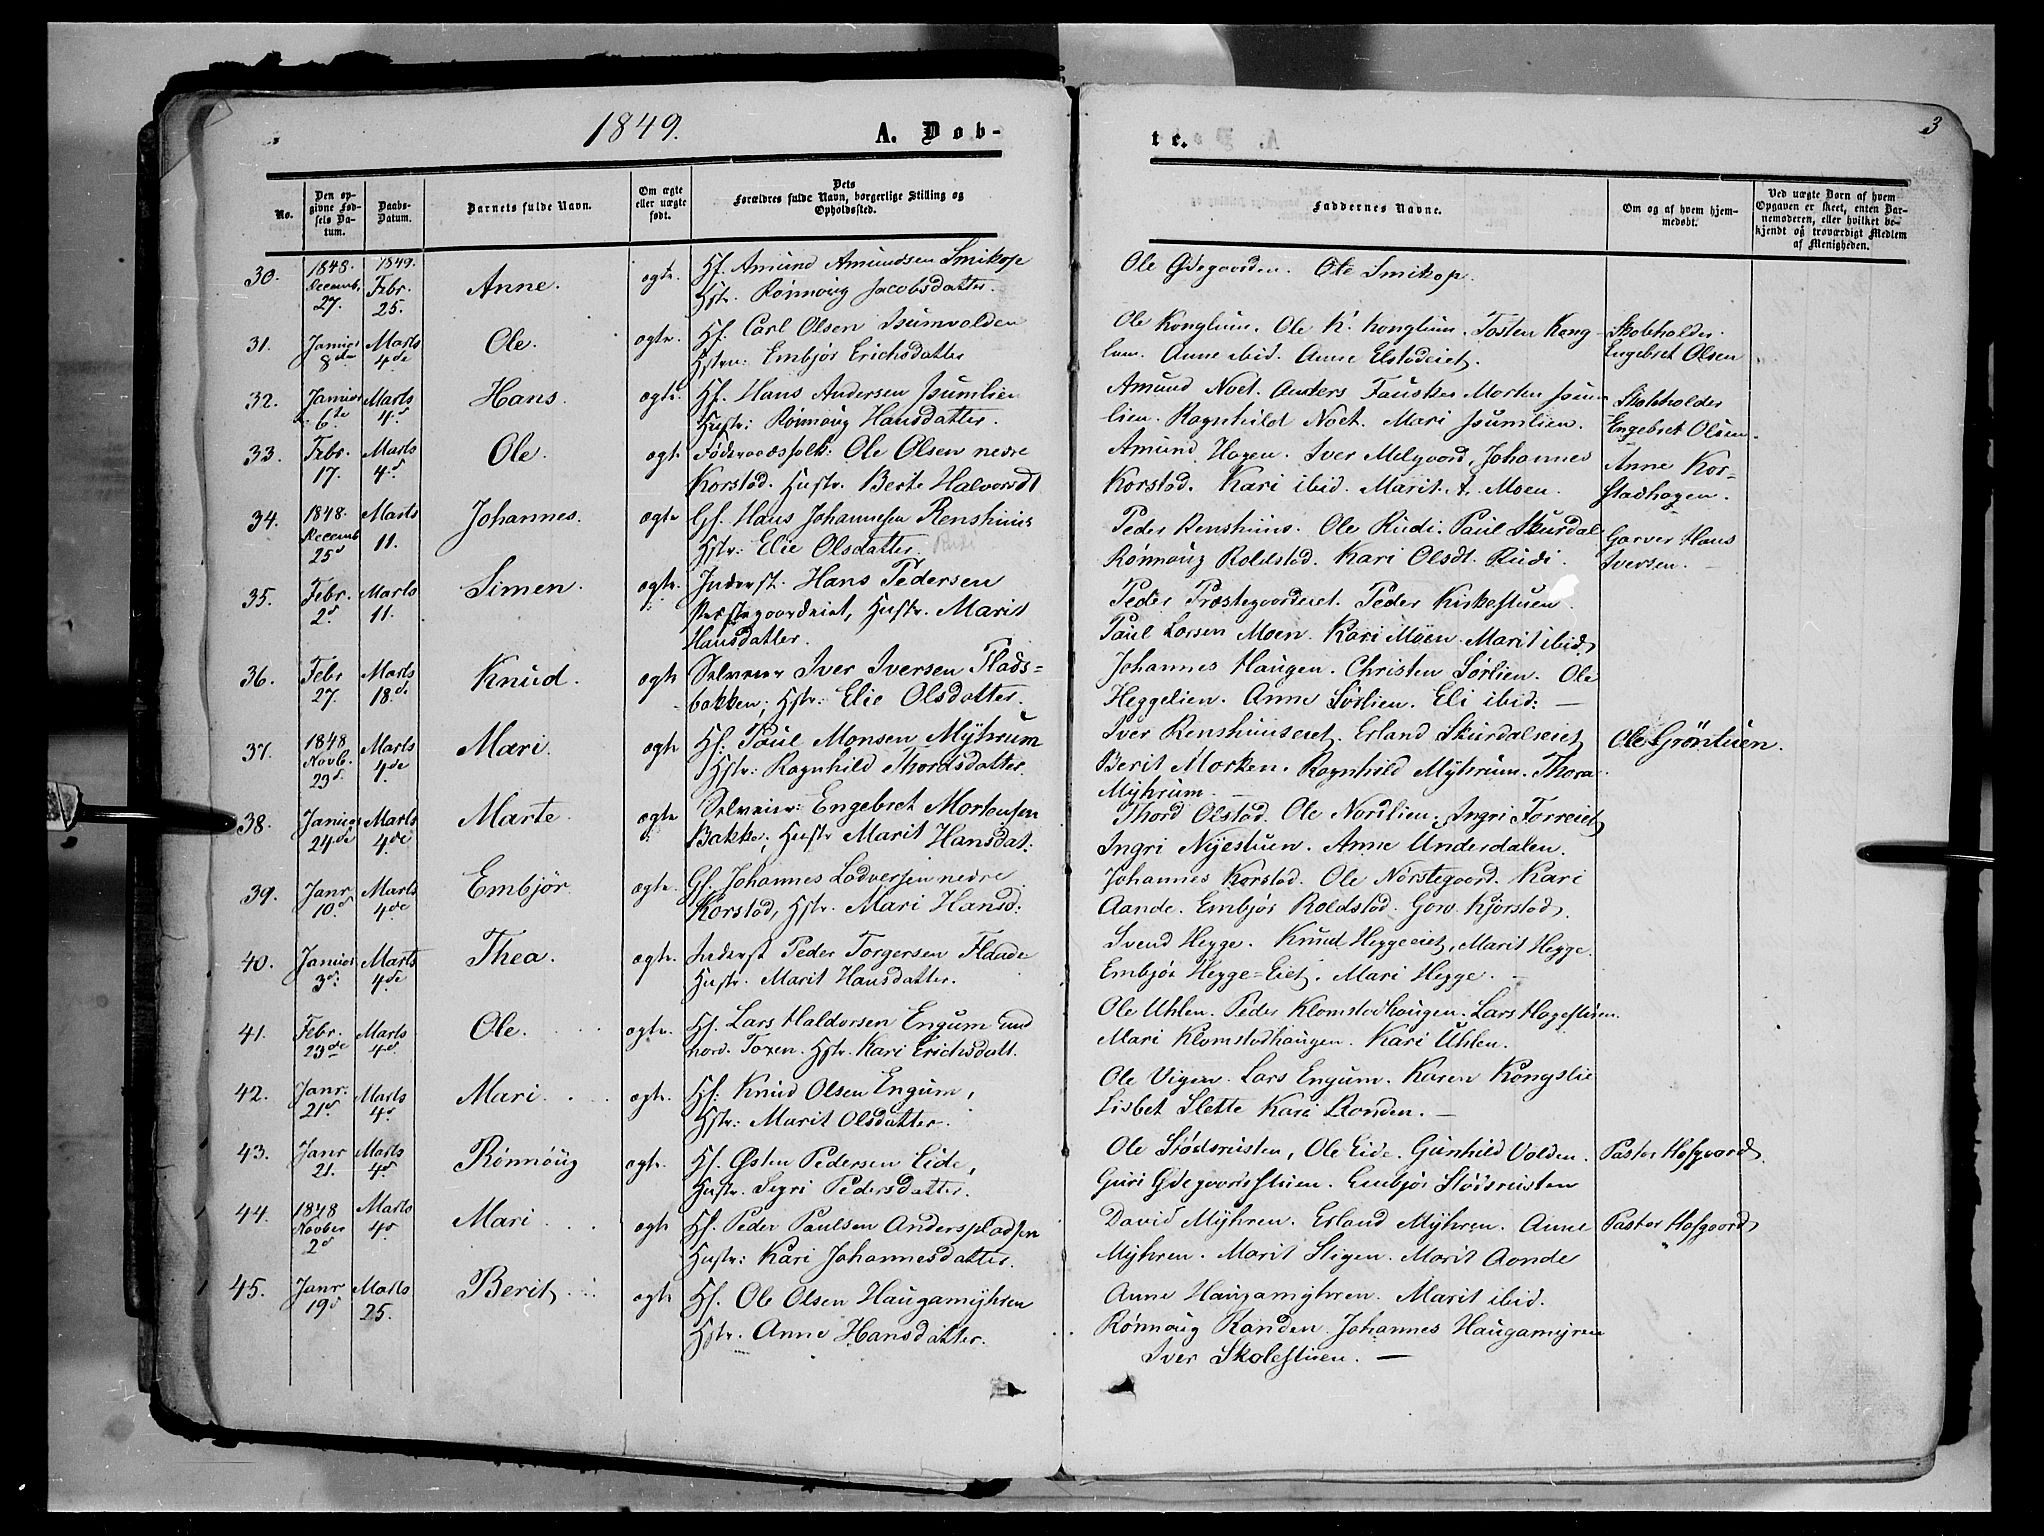 1849.
A. Døb-
te.
3
No.
Den op-
givne Fød-
sels Da-
tum.
Daabs-
Datum.
Barnets fulde Navn.
Om ægte
eller uægte
født.
Dets
Forældres fulde Navn, borgerlige Stilling og
Opholdssted.
Faddernes Navne.
Om og af hvem hjem-
medøbt.
Ved uægte Børn af hvem
Opgaven er skeet, enten Bar-
nemoderen, eller hvilket be-
kjendt og troværdigt Medlem
af Menigheden.
30. 1848. Decemb. 27. 1849. Febr. 25. Anne. ægte. Hf. Amund Amundsen Smikop
Hstr. Rønnoug Jacobsdatter.
Ole Ødegaarden. Ole Smikop.
31. Januar 8de Marts 4de Ole. ægte. Hf. Carl Olsen Isumvolden
Hstru: Embjør Erichsdatter
Ole Konglum. Ole H. Konglum. Tosten Kong-
lum. Anne ibid. Anne Elstadeiet.
Skoleholder
Engebret Olsen
32. Januar 6te Marts 4d Hans. ægte. Hf. Hans Andersen Isumlien
Hustr: Rønnoug Hansdatter.
Amund Noet. Anders Fauske. Morten Isum-
lien. Ragnhild Noet. Mari Isumlien.
Skoleholder
Engebret Olsen.
33. Febr. 17. Marts 4d Ole. ægte Føderaadsfolk: Ole Olsen nedre
Korstad. Hustr. Berte Halvorsdt
Amund Hagen. Iver Melgaard, Johannes
Korstad. Kari ibid. Marit A. Moen.
Anne Kor-
stadhagen.
34. 1848. Decemb 25d Marts 11. Johannes. ægte Gf. Hans Johannesen Renshuus
Hstr: Elie Olsdatter. Rudi
Peder Renshuus. Ole Rudi. Paul Skurdal
Rønnoug Roldstad. Kari Olsdt. Rudi.
Garver Hans
Iversen.
35. Febr. 2d Marts 11. Simen. ægte. Inderst. Hans Pedersen
Præstegaardeiet, Hustr. Marit
Hansdatter.
Peder Præstegaardeiet. Peder Kirkestuen.
Paul Larsen Moen. Kari Moen. Marit ibid.
36. Febr 27. Marts 18de Knud. ægte Selveier Iver Iversen Flads=
bakken; Hstr: Elie Olsdatter.
Johannes Haugen. Christen Sørlien. Ole
Heggelien. Anne Sørlien. Eli ibid:
37. 1848 Novb. 23d. Marts 4de Mari. ægte Hf: Paul Monsen Myhrum
Hstr: Ragnhild Thordsdatter.
Iver Renshuuseiet. Erland Skurdalseiet
Berit Morken. Ragnhild Myhrum. Thora
Myhrum.
Ole Grøntuen.
38. Januar 24de Marts 4de Marte. ægte Selveier: Engebret Mortensen
Bakke; Hustr Marit Hansdat:
Thord Olstad. Ole Nordlien. Ingri Forreiet
Ingri Nyestuen. Anne Underdalen.
39. Janr 10d Marts 4de Embjør ægte. Gf. Johannes Ladversen nedre
Korstad, Hstr. Mari Hansd:
Johannes Korstad. Ole Nørstegaard. Kari
Aande. Embjør Roldstad. Kjorstad.
40. Januar 3d: Marts 4de Thea. ægte. Inderst Peder Torgersen Flaade
Hustr. Marit Hansdatter.
Svend Hegge. Knud Heggeeiet, Marit Hegge.
Embjør Hegge=Eiet. Mari Hegge.
41. Febr. 23de Marts 4d. Ole. ægte. Hf. Lars Haldorsen Engum und
nord. Toxen. Hstr. Kari Erichsdatt.
Ole Uhlen. Peder Klomstadhaugen. Lars Hagestuen.
Mari Klomstadhaugen. Kari Uhlen.
42. Janr. 21d Marts 4d Mari. ægte. Hf: Knud Olsen Engum,
Hstr: Marit Olsdatter.
Ole Vigen. Lars Engum. Karen Kongslie
Lisbet Slette Kari Randen.
43. Janr 21. Marts 4d Rønnoug ægte. Hf. Østen Pedersen Eide,
Hustr. Segri Pedersdatter.
Ole Stødsrusten, Ole Eide. Gunhild Volden.
Guri Ødegaardsstuen. Embjør Stødsrusten
Pastor Hofgaard.
44. 1848 Novber 2d Marts 4d Mari. ægte Hf. Peder Paulsen Anderspladsen
Hustr: Kari Johannesdatter.
David Myhren. Erland Myhren. Anne
Myhren. Marit Stigen. Marit Aande
Pastor Hofgaard
45. Janr 19d Marts 25. Berit ægte Hf. Ole Olsen Haugamyhren
Hstr. Anne Hansdatter.
Anne Haugamyhren. Marit ibid.
Rønnoug Randen. Johannes Haugamyren
Iver Skolestuen.